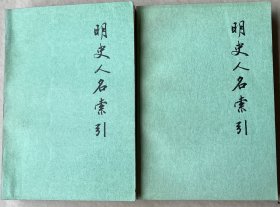 明史人名索引
明史人名索引